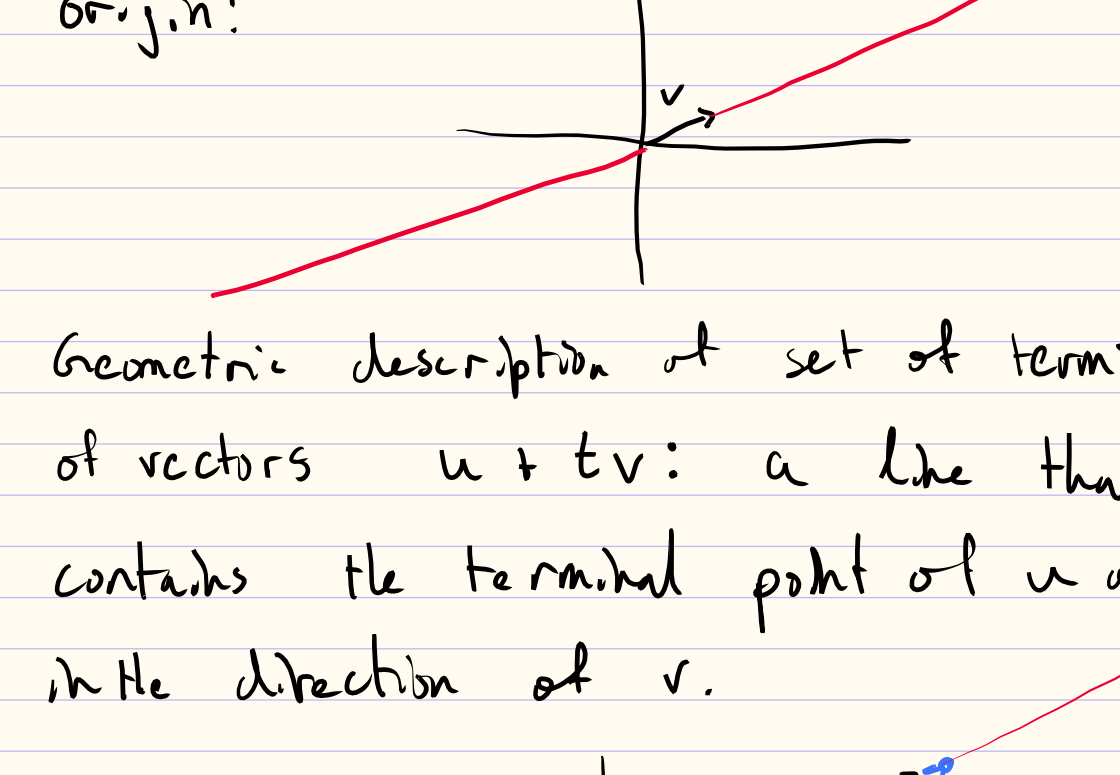 origin:
v
Geometric description of set of term
of vectors u + tv: a line tha
contains the terminal point of u a
in the direction of v.